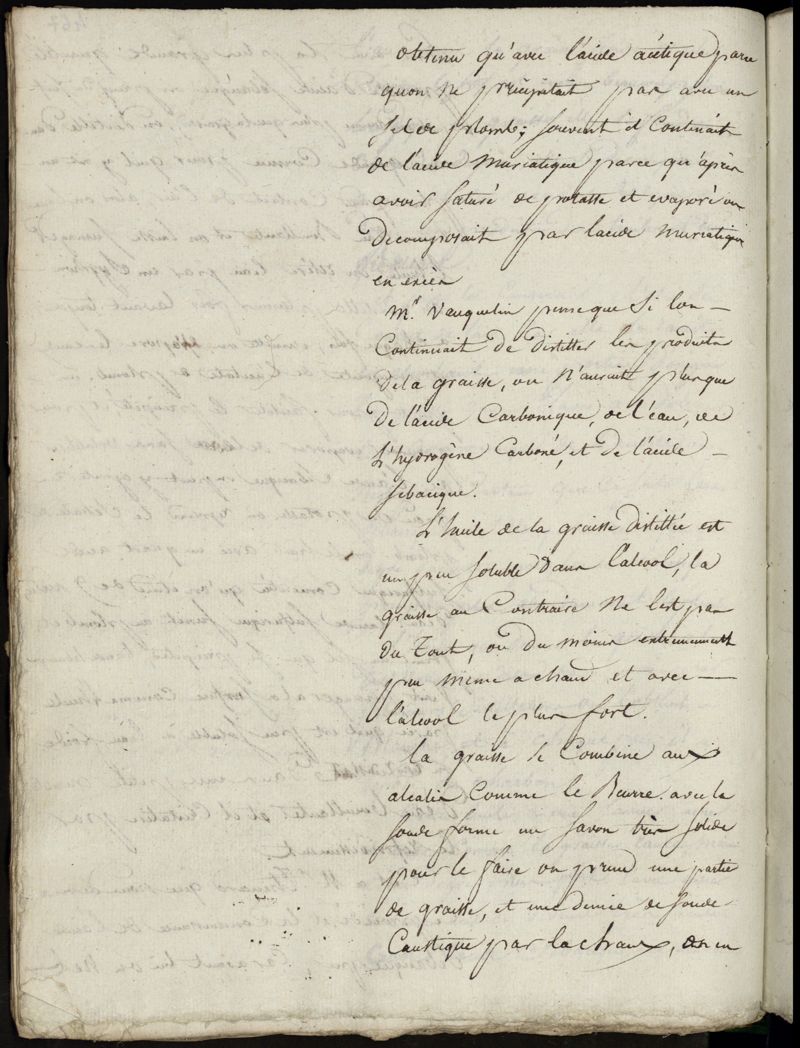 obtenu qu'avec l'acide acétique parce
quon ne précipitait pas avec un
sel de plomb; souvent il Contenait
de l'acide muriatique parce qu'après
avoir saturé de potasse et evaporé on
decomposait par lacide muriatique
en excès
Mr. Vauquelin pense que Si lon
Continuait de distiller les produits
de la graisse, on N'aurait plus que
de l'acide Carbonique, de l'eau, de
L'hydrogène Carboné, et de l'acide
sébacique.
L'huile de la graisse distillée est
un peu soluble dans l'alcool, la
graisse au Contraire Ne lest pas
du Tout, ou du moins extremement
peu meme a chaud et avec
l'alcool le plus fort.
la graisse se Combine aux
alcalis Comme le Beurre. avec la
soude forme un savon très solide
pour le faire on prend une partie
de graisse, et une demie de soude
Caustique par la chaux, on en